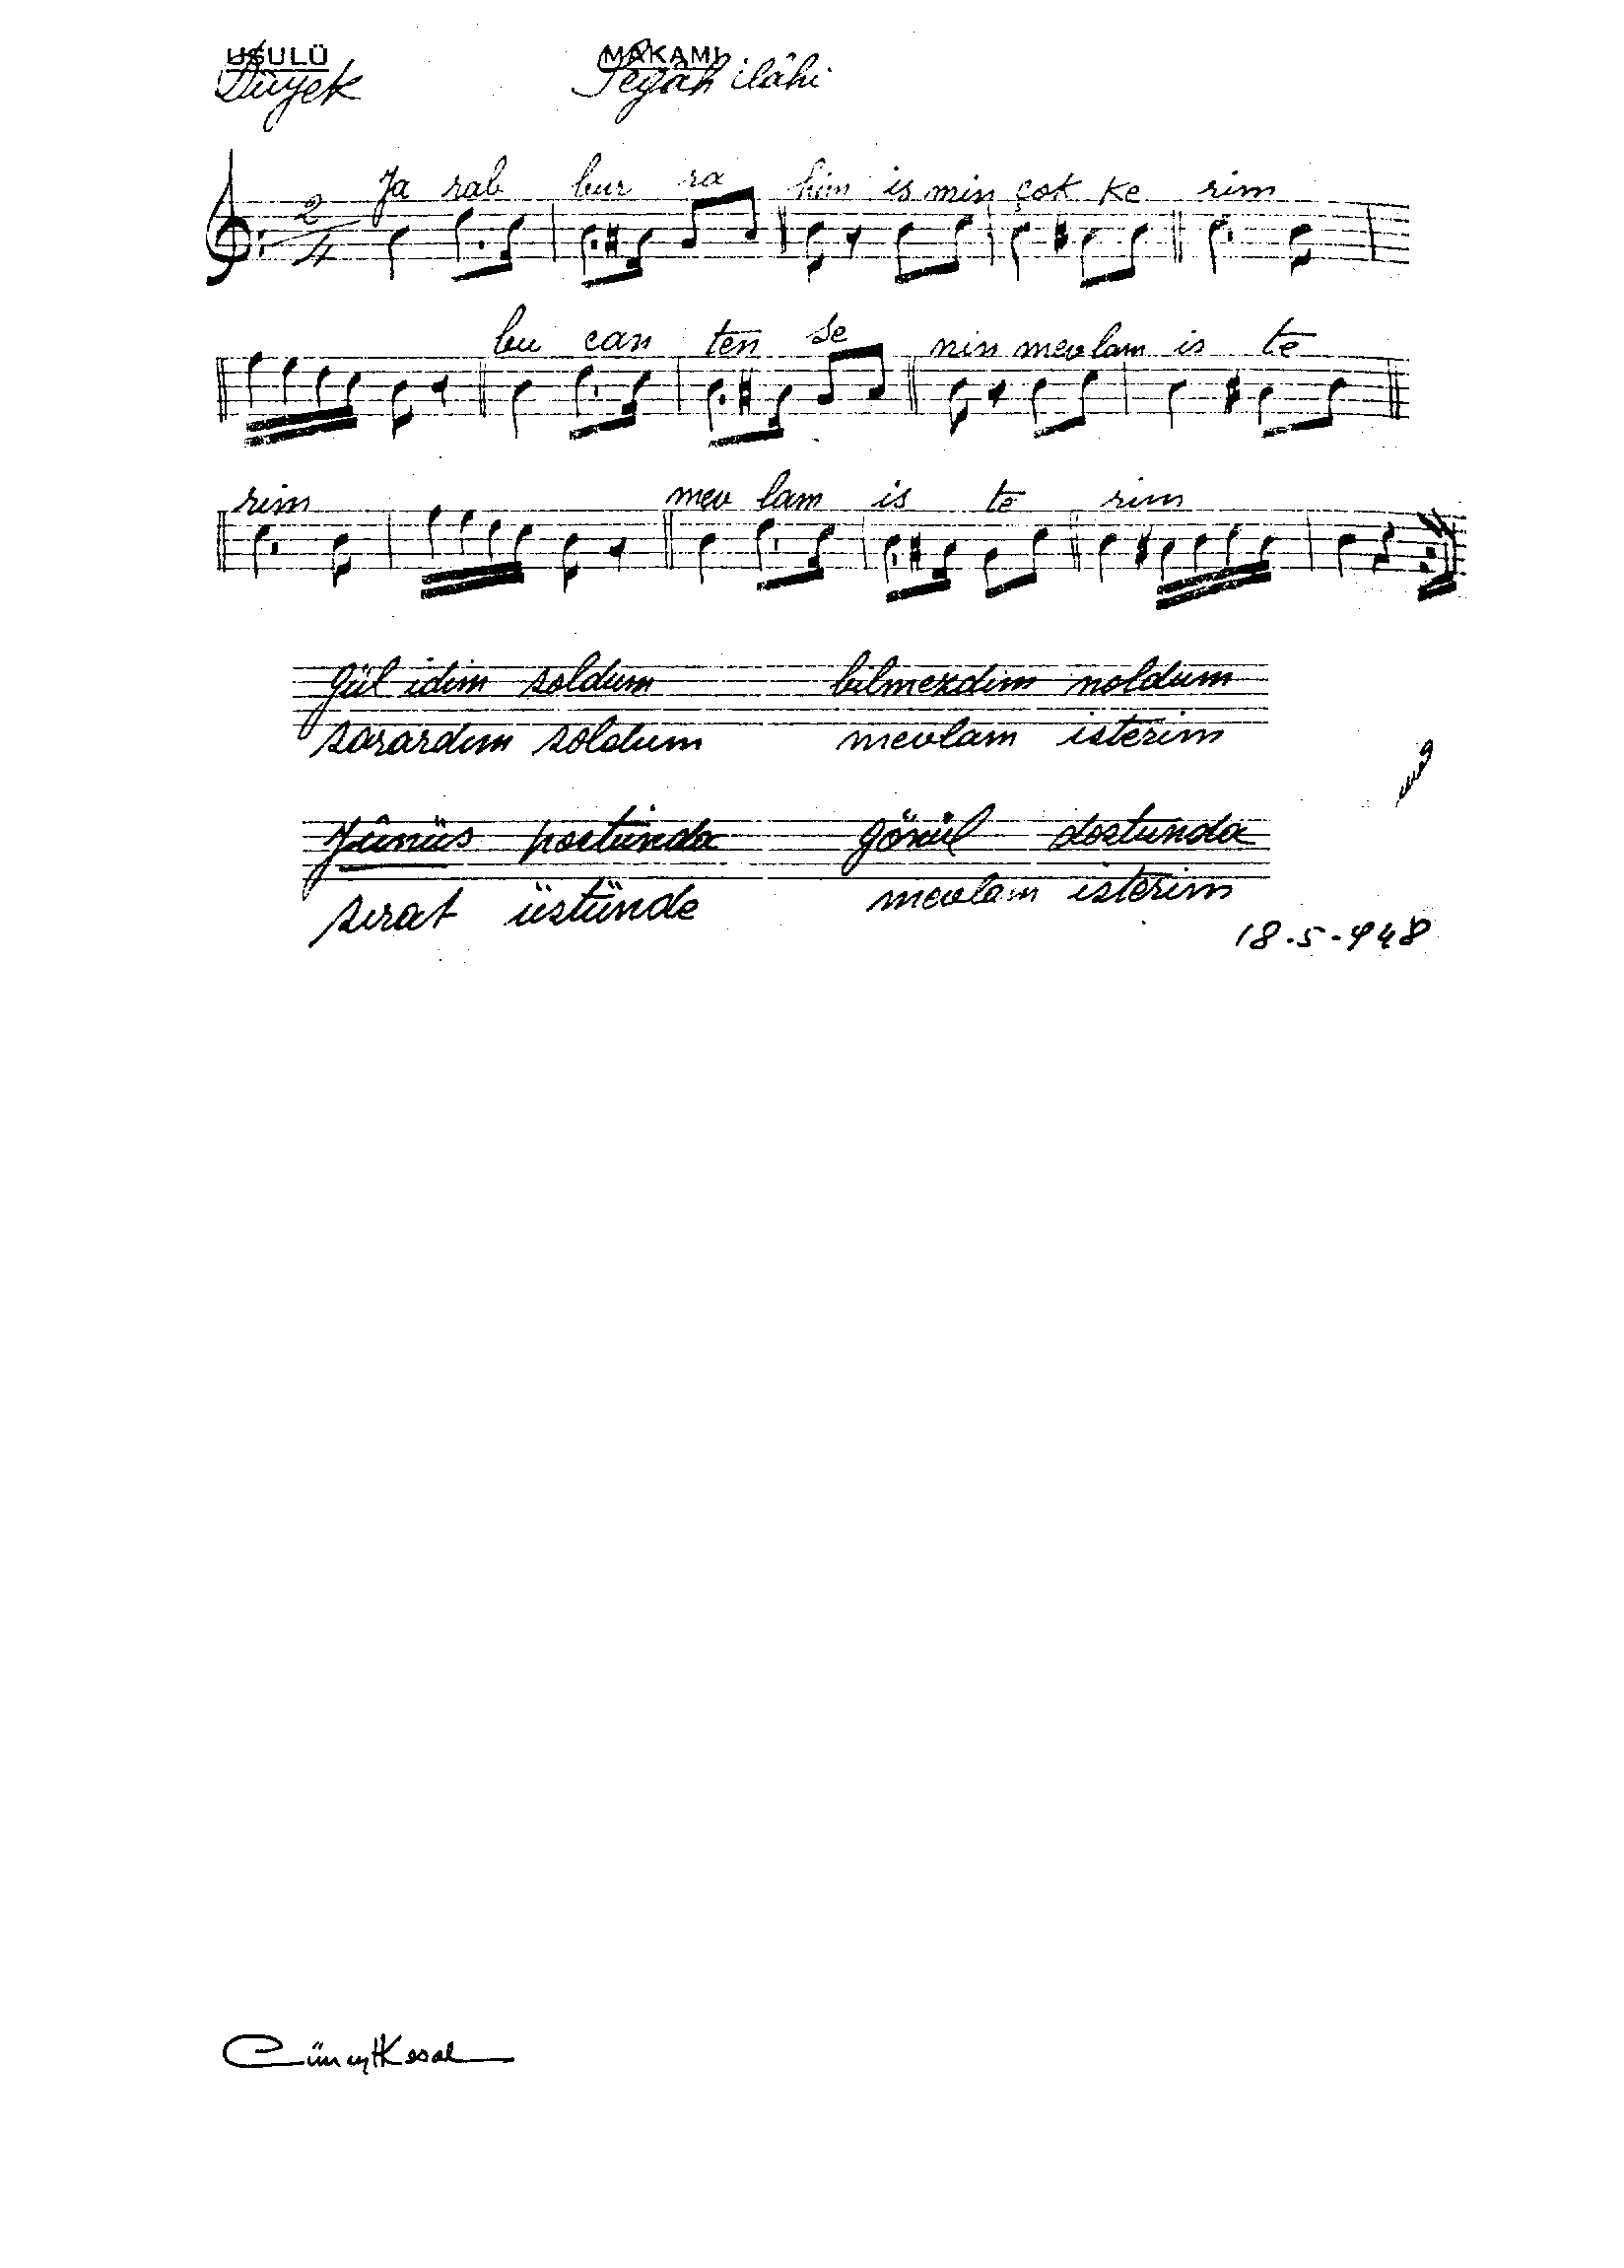 USULÜ MAKAMI
Düyek Segâh ilâhi
2/4
Ya rab bur ra him is min çok ke rim
bu can ten se nin mevlam is te
rim mev lam is te rim
Gül idim soldum bilmezdim noldum
sarardım soldum mevlam isterim
Yûnüs postunda gönül dostunda
sırat üstünde mevlam isterim
18-5-948
Cüneyt Kosal